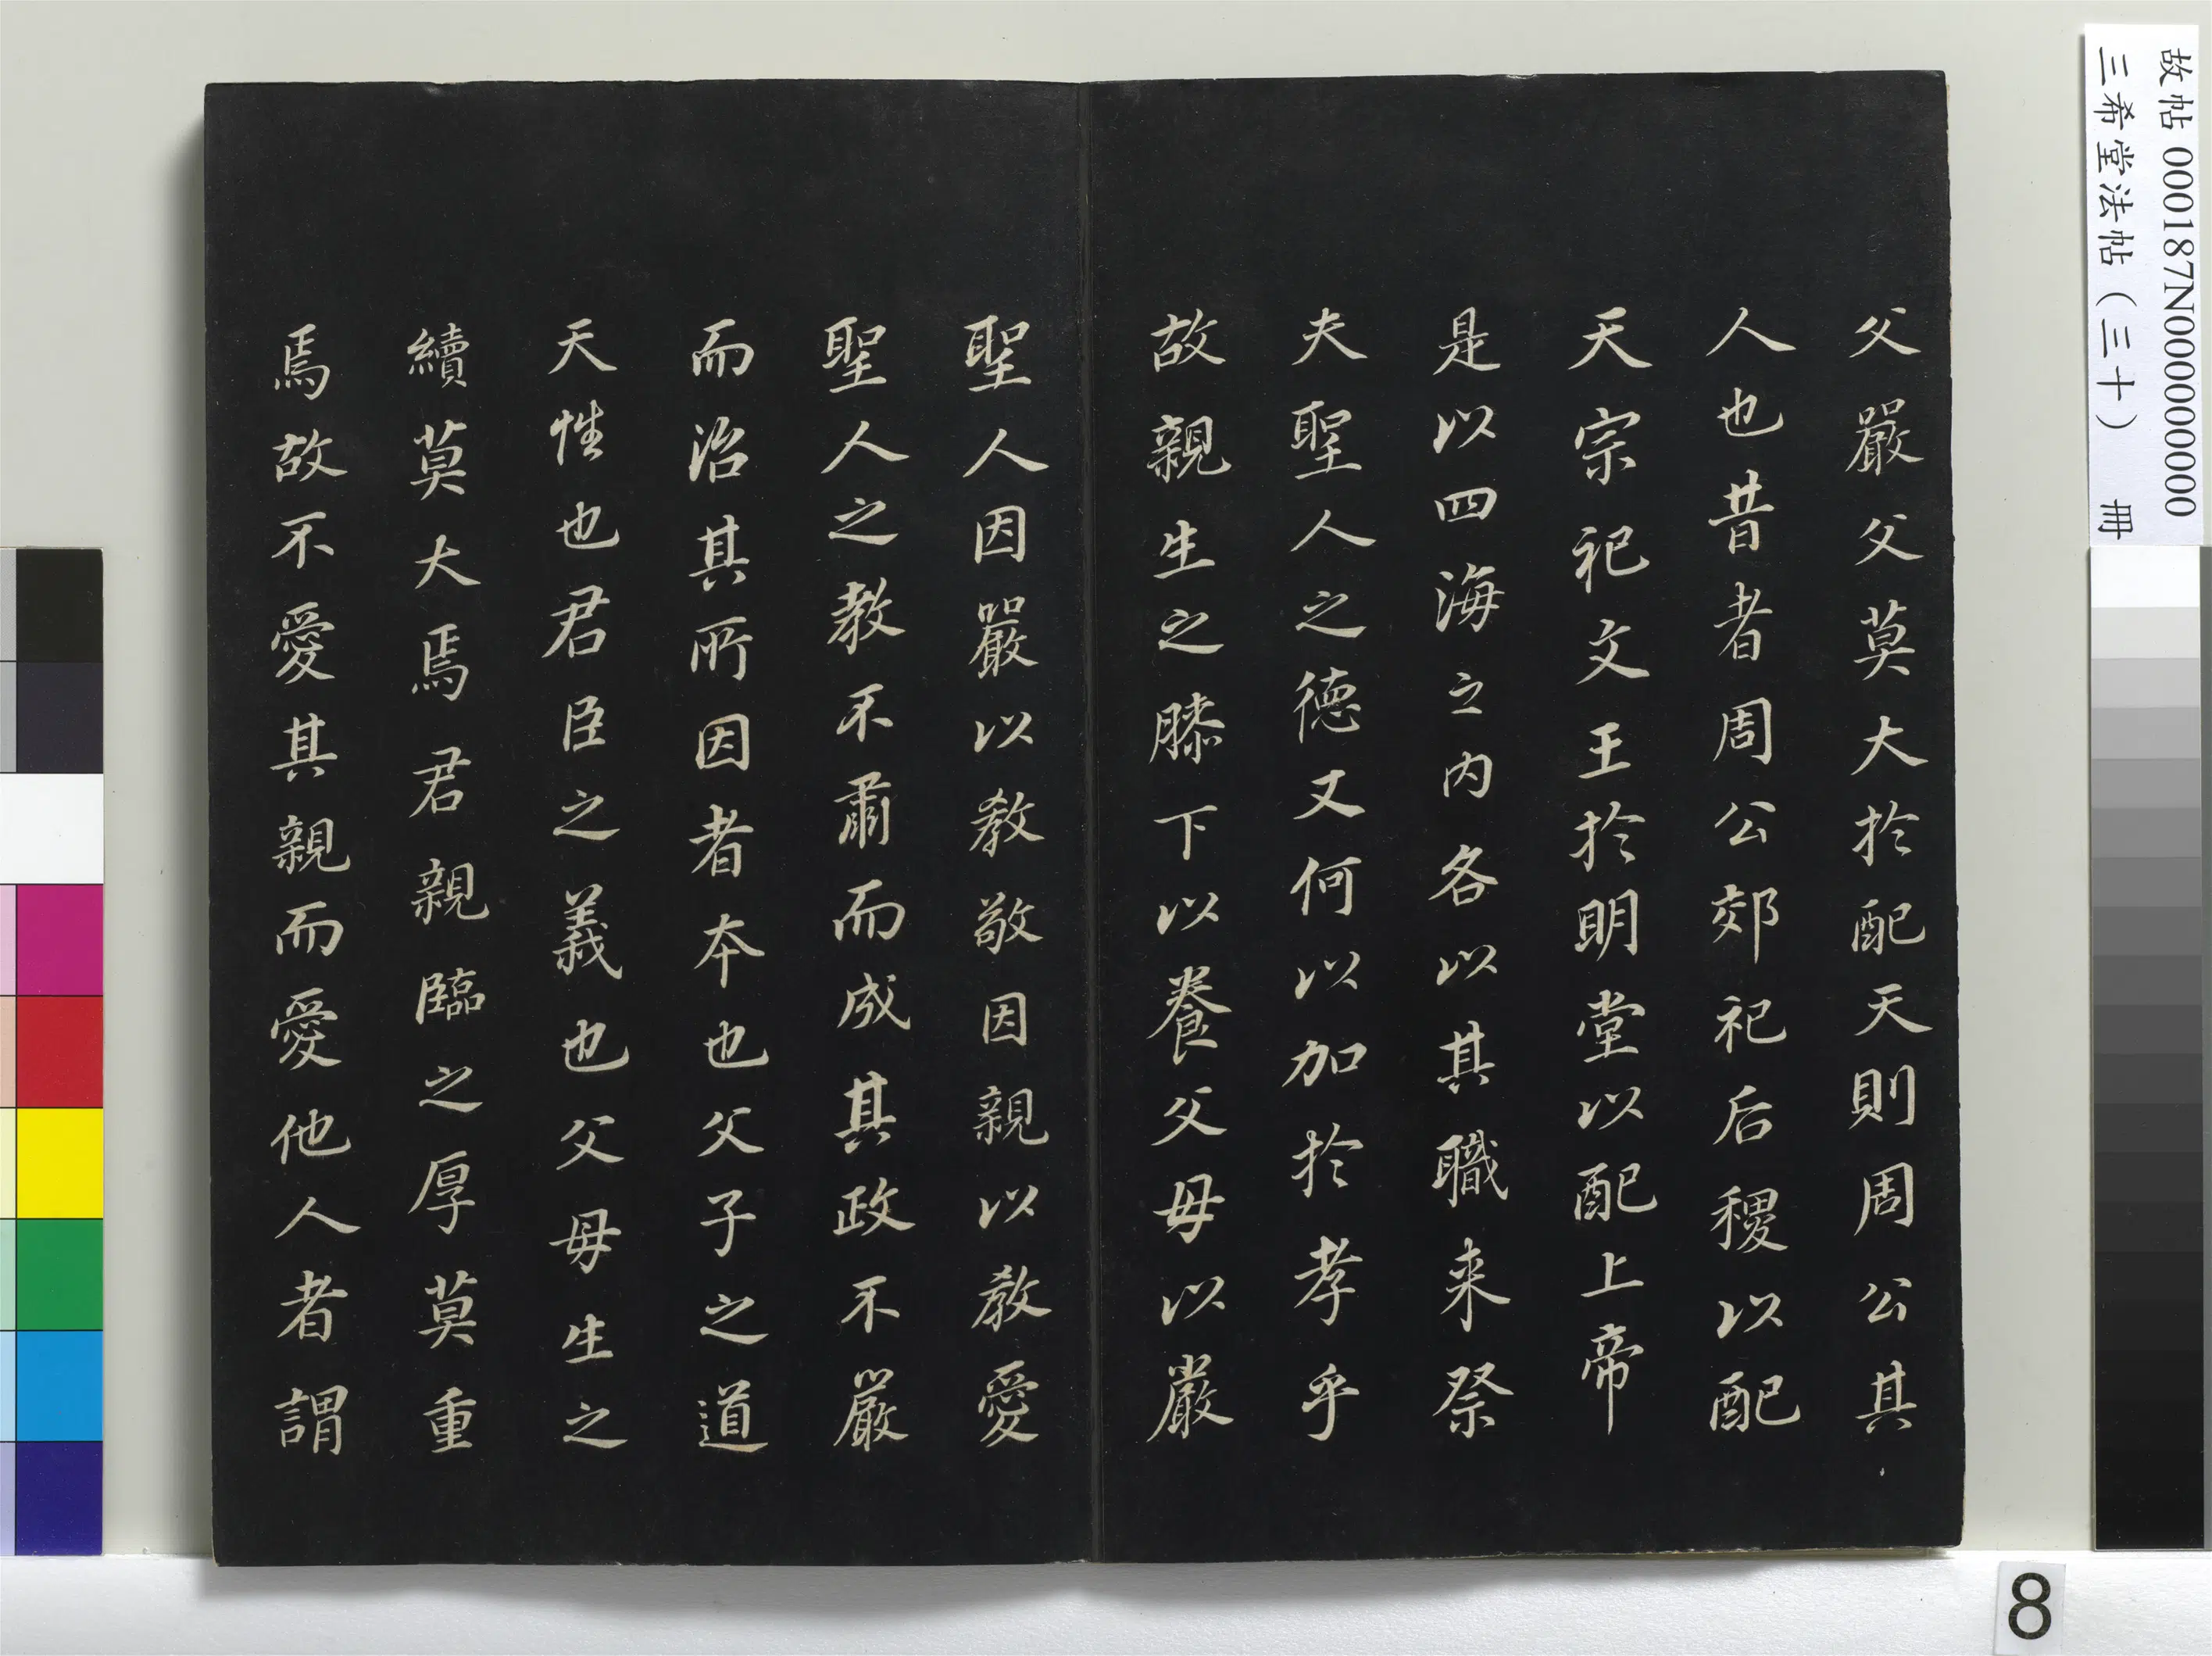 父嚴嚴父莫大於配天則周公其
人也昔者周公郊祀后稷以配
天宗祀文王於明堂以配上帝
是以四海之內各以其職来祭
夫聖人之德又何以加於孝乎
故親生之膝下以養父母以嚴
聖人因嚴以教敬因親以教愛
聖人之教不肅而成其政不嚴
而治其所因者本也父子之道
天性也君臣之義也父母生之
續莫大焉君親臨之厚莫重
焉故不愛其親而愛他人者謂
故帖 000187N000000000
三希堂法帖(三十) 冊
8